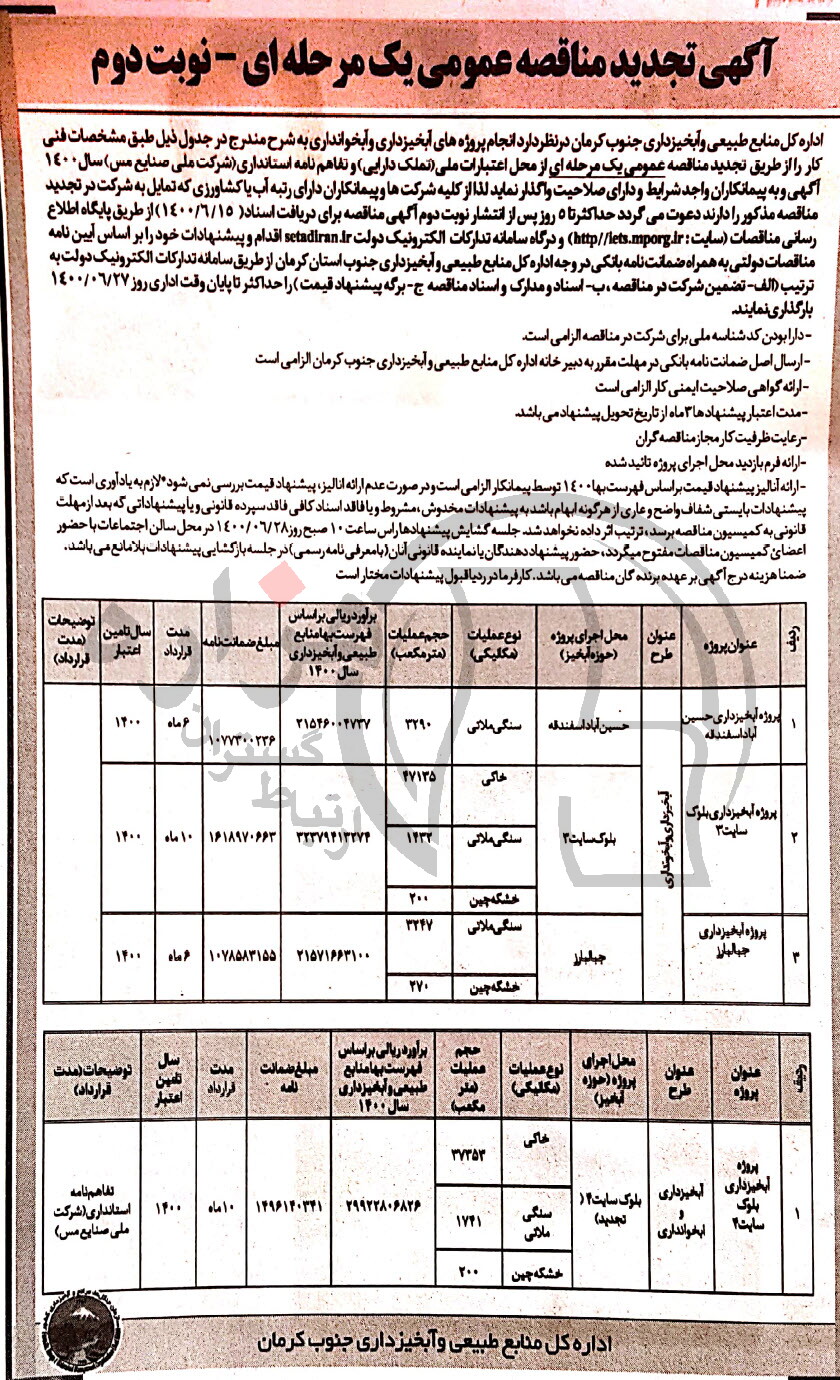 آگهی تجدید مناقصه عمومی یک مرحله ای - نوبت دوم
اداره کل منابع طبیعی و آبخیزداری جنوب کرمان در نظر دارد انجام پروژه های آبخیزداری و آبخوانداری به شرح مندرج در جدول ذیل طبق مشخصات فنی
کار را از طریق تجدید مناقصه عمومی یک مرحله ای از محل اعتبارات ملی (تملک دارایی) و تفاهم نامه استانداری (شرکت ملی صنایع مس) سال ۱۴۰۰
آگهی و به پیمانکاران واجد شرایط و دارای صلاحیت واگذار نماید لذا از کلیه شرکت ها و پیمانکاران دارای رتبه آب یا کشاورزی که تمایل به شرکت در تجدید
مناقصه مذکور را دارند دعوت می گردد حداکثر تا ۵ روز پس از انتشار نوبت دوم آگهی مناقصه برای دریافت اسناد (۱۴۰۰/۶/۱۵) از طریق پایگاه اطلاع
رسانی مناقصات (سایت: http//iets.mporg.ir) و درگاه سامانه تدارکات الکترونیک دولت setadiran.ir اقدام و پیشنهادات خود را بر اساس آیین نامه
مناقصات دولتی به همراه ضمانت نامه بانکی در وجه اداره کل منابع طبیعی و آبخیزداری جنوب استان کرمان از طریق سامانه تدارکات الکترونیک دولت به
ترتیب (الف- تضمین شرکت در مناقصه، ب- اسناد و مدارک و اسناد مناقصه ج- برگه پیشنهاد قیمت) را حداکثر تا پایان وقت اداری روز ۱۴۰۰/۰۶/۲۷
بارگذاری نمایند.
- دارا بودن کد شناسه ملی برای شرکت در مناقصه الزامی است.
- ارسال اصل ضمانت نامه بانکی در مهلت مقرر به دبیر خانه اداره کل منابع طبیعی و آبخیزداری جنوب کرمان الزامی است
- ارائه گواهی صلاحیت ایمنی کار الزامی است
- مدت اعتبار پیشنهادها ۳ ماه از تاریخ تحویل پیشنهاد می باشد.
- رعایت ظرفیت کار مجاز مناقصه گران
- ارائه فرم بازدید محل اجرای پروژه تائید شده
- ارائه آنالیز پیشنهاد قیمت بر اساس فهرست بها ۱۴۰۰ توسط پیمانکار الزامی است و در صورت عدم ارائه انالیز، پیشنهاد قیمت بررسی نمی شود* لازم به یادآوری است که
پیشنهادات بایستی شفاف واضح و عاری از هرگونه ابهام باشد به پیشنهادات مخدوش، مشروط و یا فاقد اسناد کافی فاقد سپرده قانونی و یا پیشنهاداتی که بعد از مهلت
قانونی به کمیسیون مناقصه برسد، ترتیب اثر داده نخواهد شد. جلسه گشایش پیشنهادها راس ساعت ۱۰ صبح روز ۱۴۰۰/۰۶/۲۸ در محل سالن اجتماعات با حضور
اعضائ کمیسیون مناقصات مفتوح میگردد، حضور پیشنهاد دهندگان یا نماینده قانونی آنان (با معرفی نامه رسمی) در جلسه بازگشایی پیشنهادات بلامانع می باشد.
ضمنا هزینه درج آگهی بر عهده برنده گان مناقصه می باشد. کارفرما در رد یا قبول پیشنهادات مختار است
ردیف عنوان پروژه عنوان طرح محل اجرای پروژه (حوزه آبخیز) نوع عملیات (مکانیکی) حجم عملیات (متر مکعب) برآورد ریالی بر اساس فهرست بها منابع طبیعی و آبخیزداری سال ۱۴۰۰ مبلغ ضمانت نامه مدت قرارداد سال تامین اعتبار توضیحات (مدت قرارداد)
۱ پروژه آبخیزداری حسین آباد اسفندقه آبخیزداری و آبخوانداری حسین آباد اسفندقه سنگی ملاتی ۳۲۹۰ ۲۱۵۴۶۰۰۴۷۳۷ ۱۰۷۷۳۰۰۲۳۶ ۶ ماه ۱۴۰۰
۲ پروژه آبخیزداری بلوک سایت ۳ بلوک سایت ۳ خاکی ۴۷۱۳۵ ۳۲۳۷۹۴۱۳۲۷۴ ۱۶۱۸۹۷۰۶۶۳ ۱۰ ماه ۱۴۰۰
سنگی ملاتی ۱۴۳۲
خشکه چین ۲۰۰
۳ پروژه آبخیزداری جبالبارز جبالبارز سنگی ملاتی ۳۲۴۷ ۲۱۵۷۱۶۶۳۱۰۰ ۱۰۷۸۵۸۳۱۵۵ ۶ ماه ۱۴۰۰
خشکه چین ۲۷۰
ردیف عنوان پروژه عنوان طرح محل اجرای پروژه (حوزه آبخیز) نوع عملیات (مکانیکی) حجم عملیات (متر مکعب) برآورد ریالی بر اساس فهرست بها منابع طبیعی و آبخیزداری سال ۱۴۰۰ مبلغ ضمانت نامه مدت قرارداد سال تامین اعتبار توضیحات (مدت قرارداد)
۱ پروژه آبخیزداری بلوک سایت ۴ آبخیزداری و ابخوانداری بلوک سایت ۴ (تجدید) خاکی ۳۷۳۵۳ ۲۹۹۲۲۸۰۶۸۲۶ ۱۴۹۶۱۴۰۳۴۱ ۱۰ ماه ۱۴۰۰ تفاهم نامه استانداری (شرکت ملی صنایع مس)
سنگی ملاتی ۱۷۴۱
خشکه چین ۲۰۰
اداره کل منابع طبیعی و آبخیزداری جنوب کرمان